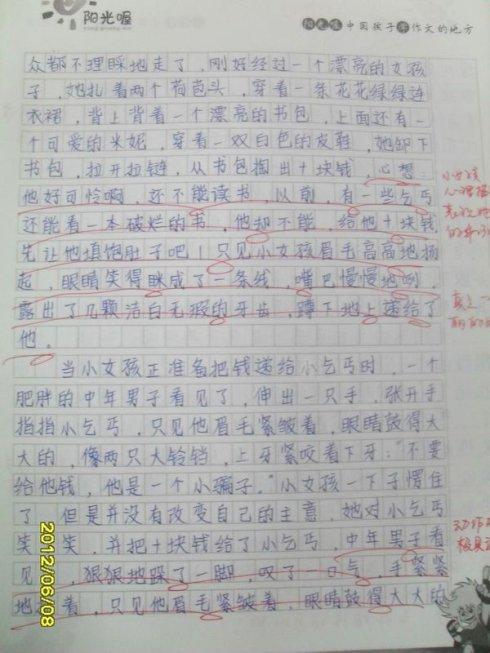 阳光喔
阳光喔 中国孩子学作文的地方
众都不理睬地走了，刚好经过一个漂亮的女孩
子，她扎着两个荷苞头，穿着一条花花绿绿连
衣裙，背上背着一个漂亮的书包，上面还有一
个可爱的米妮，穿着一双白色的皮鞋，她卸下
书包，拉开拉链，从书包掏出十块钱，心想：
他好可怜啊，还不能读书，以前，有一些乞丐
还能看一本破烂的书，他却不能，给他十块钱
先让他填饱肚子吧！只见小女孩眉毛高高地扬
起，眼睛笑得眯成了一条线，嘴巴慢慢地咧，
露出了几颗洁白无瑕的牙齿，蹲下地上递给了
他。
当小女孩正准备把钱递给小乞丐时，一个
肥胖的中年男子看见了，伸出一只手，张开手
指指小乞丐，只见他眉毛紧皱着，眼睛鼓得大
大的，像两只大铃铛，上牙紧咬着下牙："不要
给他钱，他是一个小骗子。"小女孩一下子愣住
了，但是并没有改变自己的主意，她对小乞丐
笑一笑，并把十块钱给了小乞丐，中年男子看
见，狠狠地跺了一脚，叹了一口气，手紧紧
地着，只见他眉毛紧皱着，眼睛鼓得大大的
2012/06/08